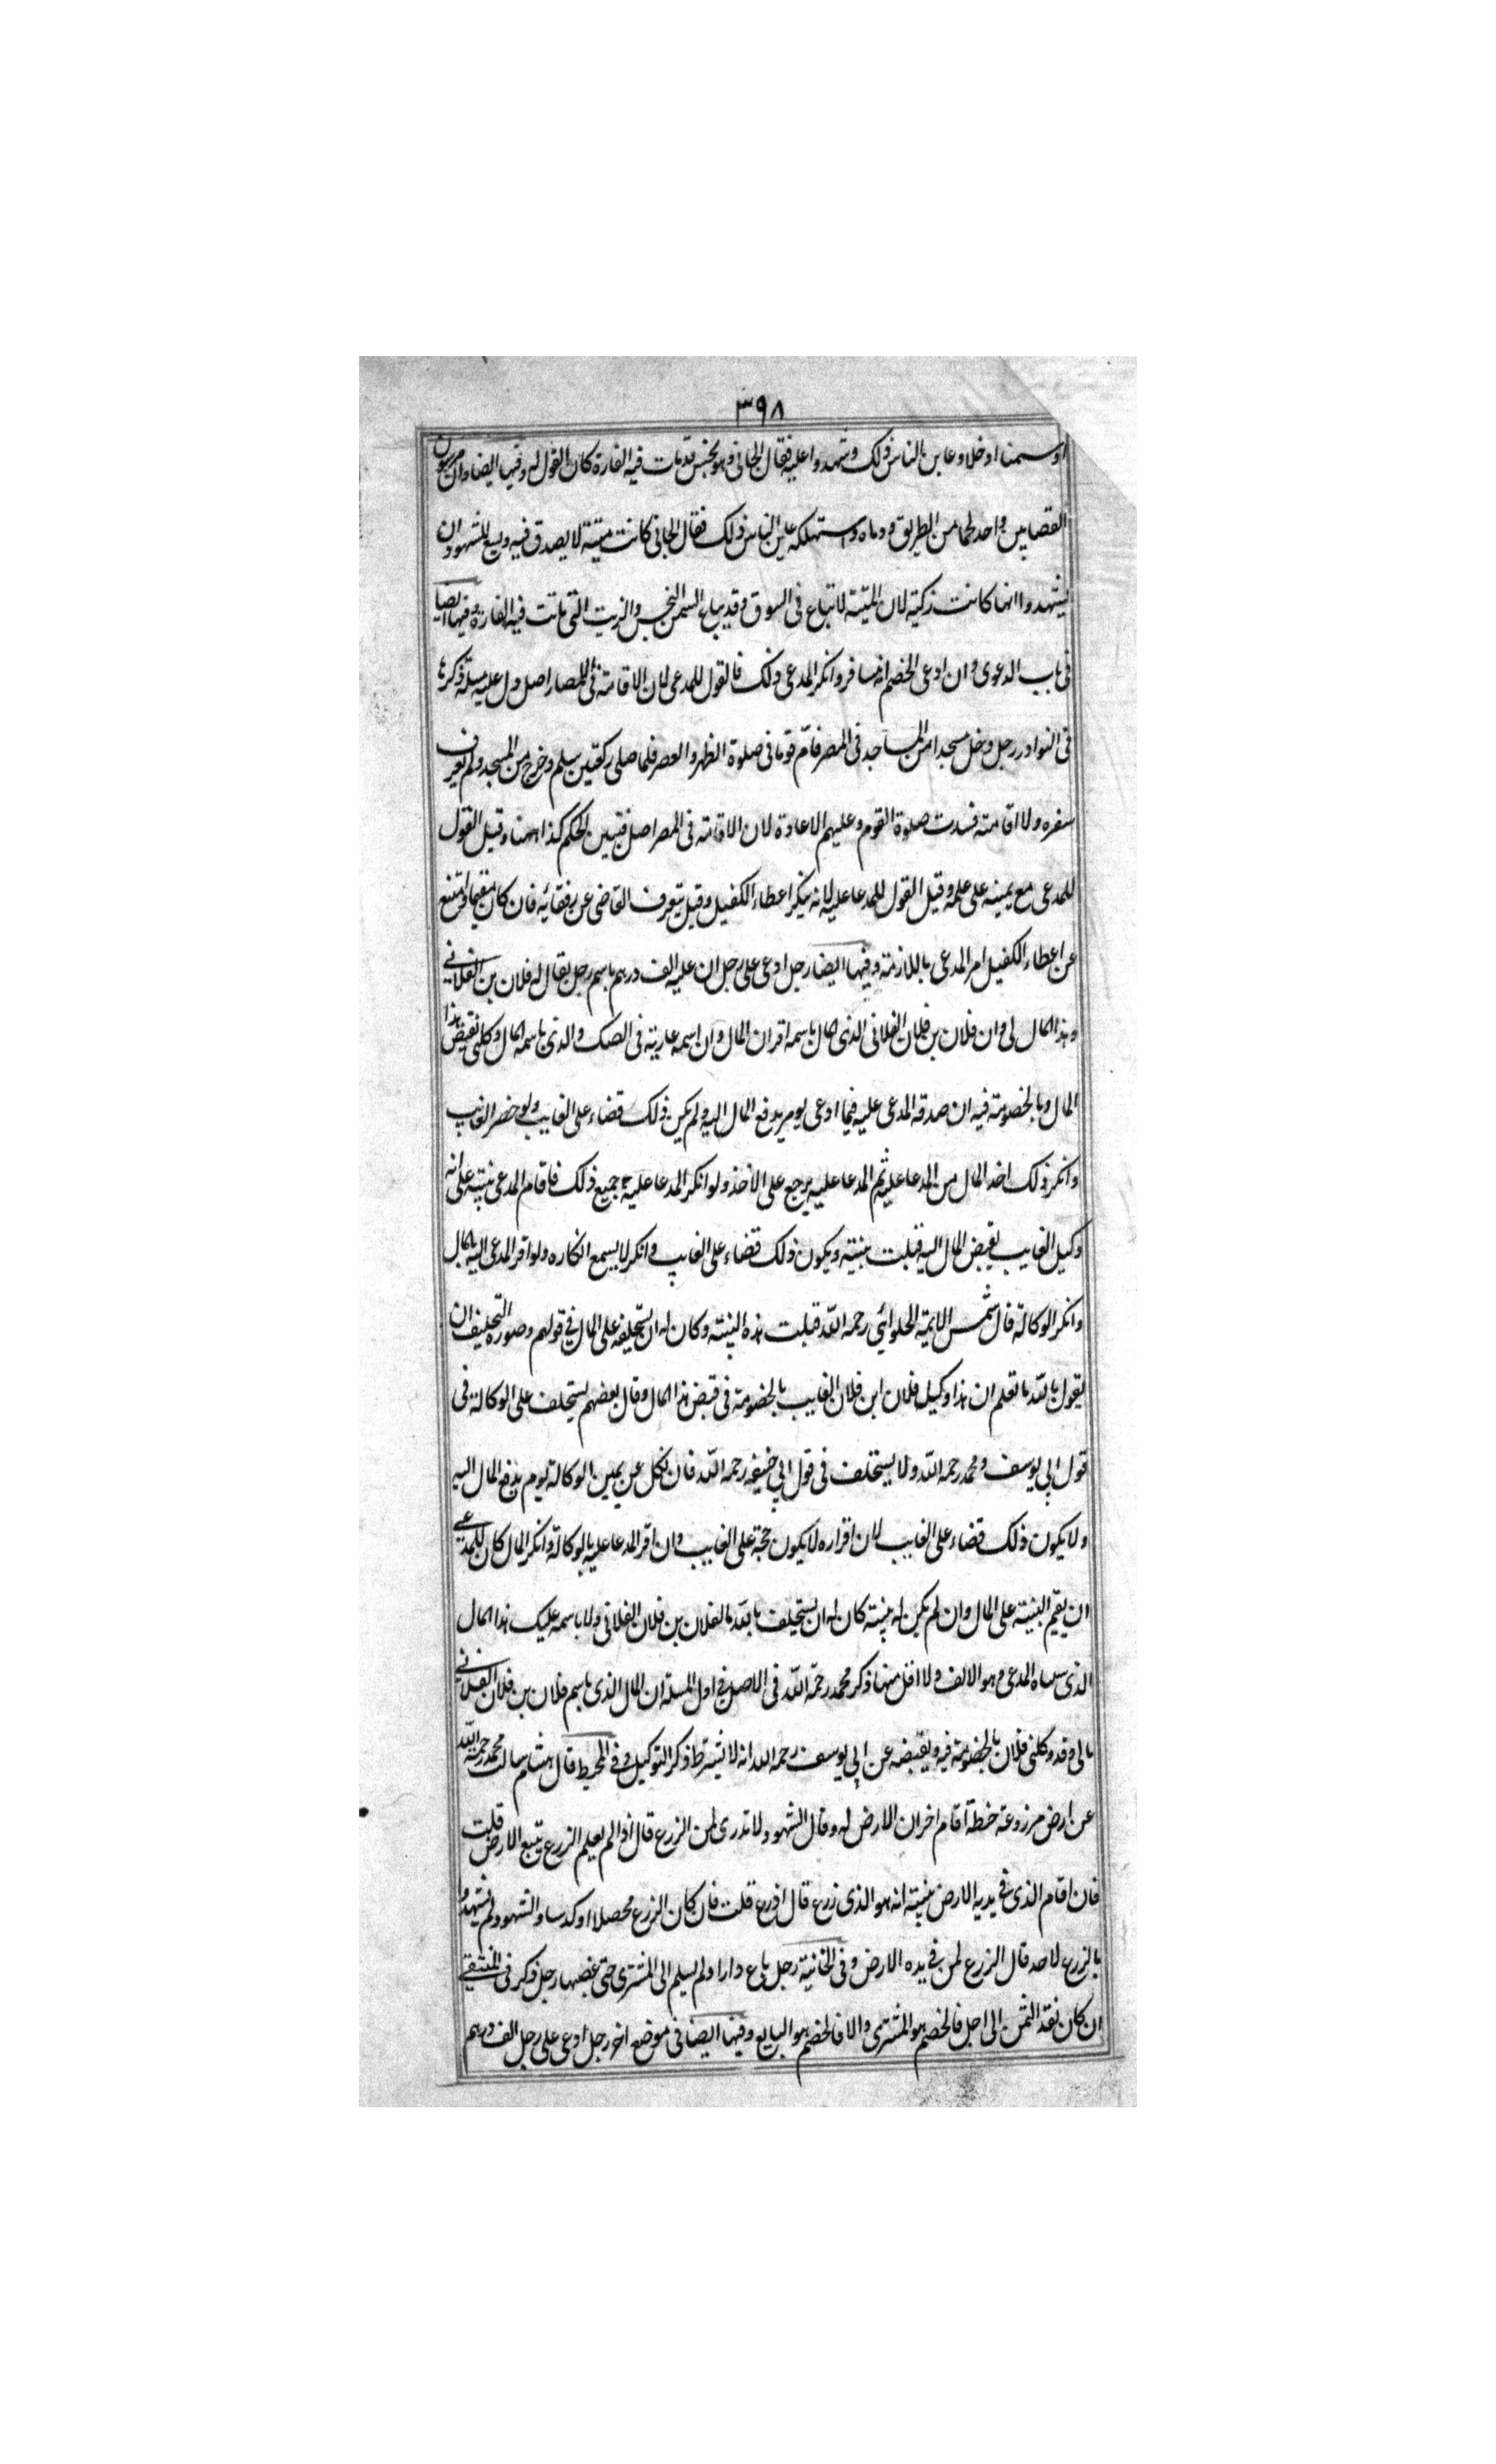 ۳۹۸
او سمنا او خلا وعاين الناس ذلك وشهدوا عليه فقال الجاني وهو نجس قد مات فيه الفارة كان القول له وفيها ايضا وان
القصابين واحد لحما من الطريق ورماه واستهلكه عاين الناس ذلك فقال الجاني كانت ميتة لا يصدق فيه ويسع للشهود ان
يشهدوا انها كانت زكية لان الميتة لا تباع في السوق وقد يباع السمن النجس والزيت التي ماتت فيه الفارة وفيها ايضا
في باب الدعوى وان ادعى الخصم انه مسافر وانكر المدعى ذلك فالقول للمدعى لان الاقامة في الامصار اصل ول عليه مسئلة ذكرها
في النوادر رجل دخل مسجدا من المساجد في المصر فأمّ قوما في صلوة الظهر والعصر فلما صلى ركعتين سلم وخرج من المسجد ولم يعرف
سفره ولا اقامته فسدت صلوة القوم وعليهم الاعادة لان الاقامة في المصر اصل فتبين الحكم كذا ههنا وقيل القول
للمدعى مع يمينه على علمه وقيل القول للمدعا عليه لانه ينكر اعطاء الكفيل وقيل يتعرف القاضى عن رفقائه فان كان مقيما وامتنع
عن اعطاء الكفيل امر المدعى بالملازمة وفيها ايضا رجل ادعى على رجل ان عليه الف درهم باسم رجل يقال له فلان بن الفلاني
وهذا المال لى وان فلان بن فلان الفلاني الذى المال باسمه اقر ان المال وان اسمه عارية في الصك والذى باسمه المال وكلنى بقبض هذا
المال وبالخصومة فيه ان صدقه المدعى عليه فيما ادعى يومر بدفع المال اليه ولم يكن ذلك قضاء على الغايب ولو حضر الغايب
وانكر ذلك اخذ المال من المدعا عليه ثم المدعا عليه يرجع على الاخذ ولو انكر المدعا عليه جميع ذلك فاقام المدعى بينة على انه
وكيل الغايب بقبض المال اليه قبلت بينته ويكون ذلك قضاء على الغايب وانكر لا يسمع انكاره ولو اقر المدعى اليه بالمال
وانكر الوكالة قال شمس الايمة الحلوائي رحمه الله قبلت هذه البينة وكان له ان يستحلفه على المال في قولهم وصورة التحليف ان
يقول بالله ما تعلم ان هذا وكيل فلان ابن فلان الغايب بالخصومة في قبض هذا المال وقال بعضهم يستحلف على الوكالة في
قول ابي يوسف ومحمد رحمه الله ولا يستحلف في قول ابي حنيفه رحمه الله فان نكل عن يمين الوكالة يومر بدفع المال اليه
ولا يكون ذلك قضاء على الغايب لان اقراره لا يكون حجة على الغايب وان اقر المدعا عليه بالوكالة وانكر المال كان للمدعى
ان يقيم البينة على المال وان لم يكن له بينة كان له ان يستحلف بالله ما لفلان بن فلان الفلاني ولا باسمه عليك هذا المال
الذى سماه المدعى وهو الالف ولا اقل منها ذكر محمد رحمة الله في الاصل في اول المسئلة ان المال الذى باسم فلان بن فلان الفلاني
مالى وقد وكلنى فلان بالخصومة فيه وبقبضه عن ابي يوسف رحمه الله انه لا يشترط ذكر التوكيل وفي المحيط قال هشام سالت محمد رحمة الله
عن ارض مزروعة حنطة اقام اخر ان الارض له وقال الشهود لا ندرى لمن الزرع قال اذا لم يعلم الزرع يتبع الارض قلت
فان اقام الذى في يديه الارض بينة انه هو الذى زرع قال ادفع قلت فان كان الزرع محصدا او كدسا والشهود لم يشهدوا
بالزرع لاحد قال الزرع لمن في يده الارض وفي الخانية رجل باع دارا ولم يسلم الى المشترى حتى غصبها رجل ذكر في المنتقى
ان كان نقد الثمن الى اجل فالخصم هو المشترى والا فالخصم هو البايع وفيها ايضا في موضع اخر رجل ادعى على رجل الف درهم